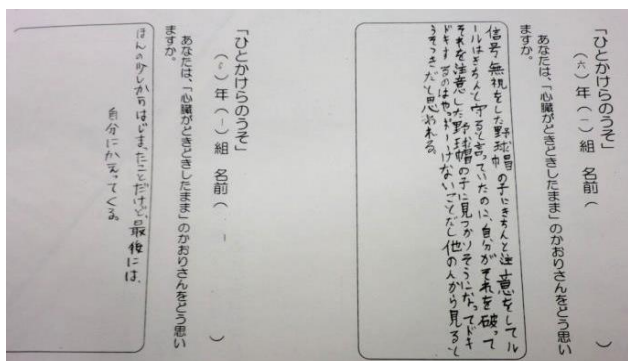 「ひとかけらのうそ」
（六）年（一）組　名前（
あなたは、「心臓がどきどきしたまま」のかおりさんをどう思い
ますか。
信号無視をした野球帽の子にきちんと注意をしてル
ールはきちんと守ると言っていたのに、自分がそれを破って
それを注意した野球帽の子に見つかりそうになってドキ
ドキするのはやっぱりいけないことだし他の人から見ると
うそつきだと思われる。
「ひとかけらのうそ」
（6）年（1）組　名前（　）
あなたは、「心臓がどきどきしたまま」のかおりさんをどう思い
ますか。
ほんの少しからはじまったことだけど、最後には、
自分にかえってくる。